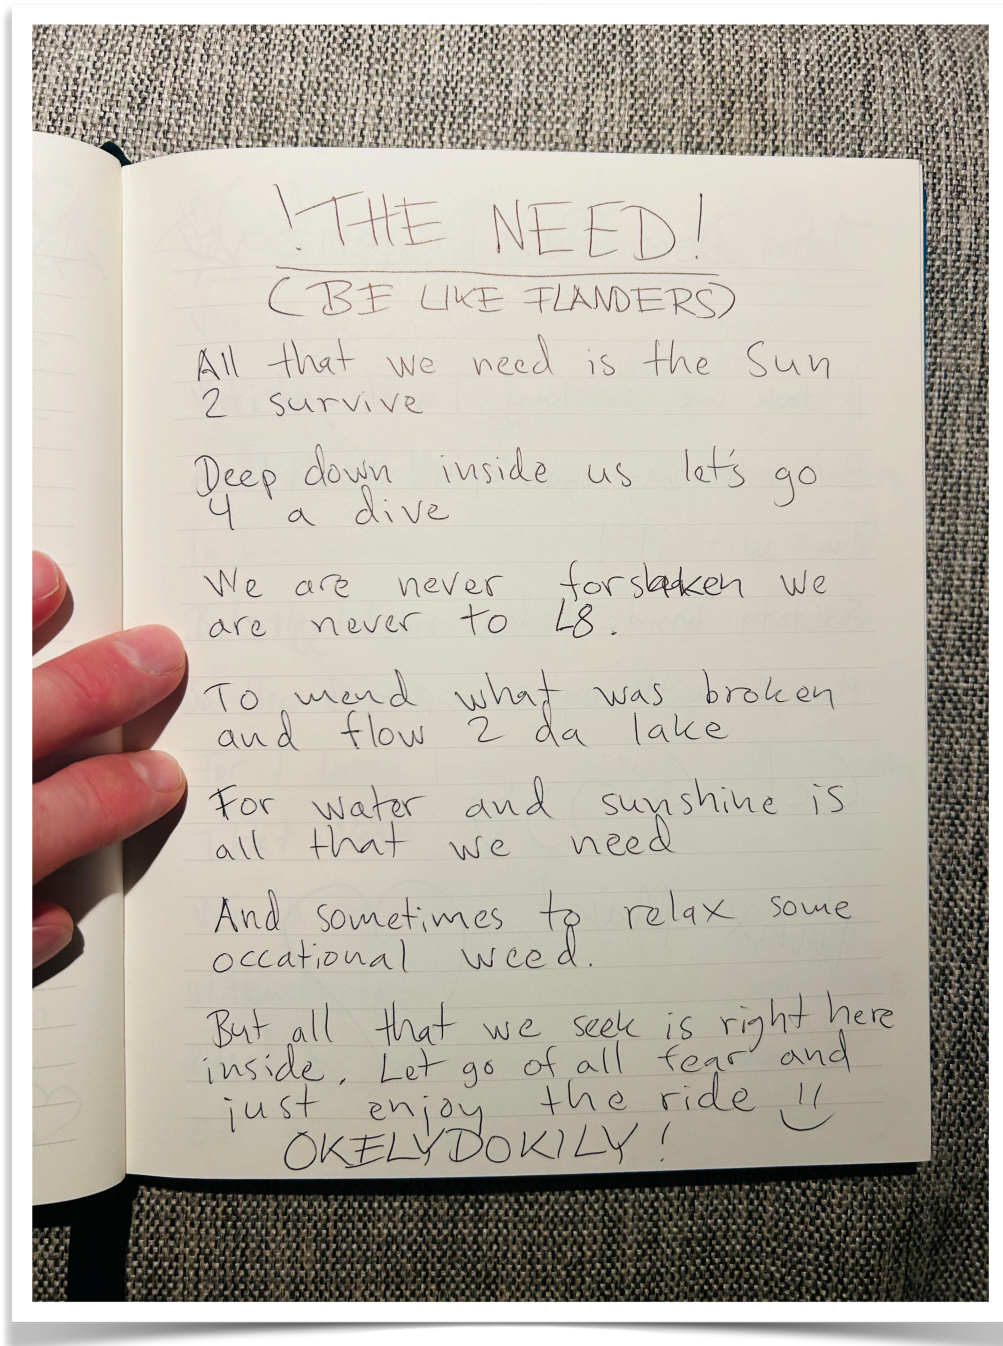 !THE NEED!
(BE LIKE FLANDERS)
All that we need is the Sun
2 survive
Deep down inside us let's go
4 a dive
We are never forsaken we
are never to L8.
To mend what was broken
and flow 2 da lake
For water and sunshine is
all that we need
And sometimes to relax some
occational weed.
But all that we seek is right here
inside. Let go of all fear and
just enjoy the ride
OKELYDOKILY!